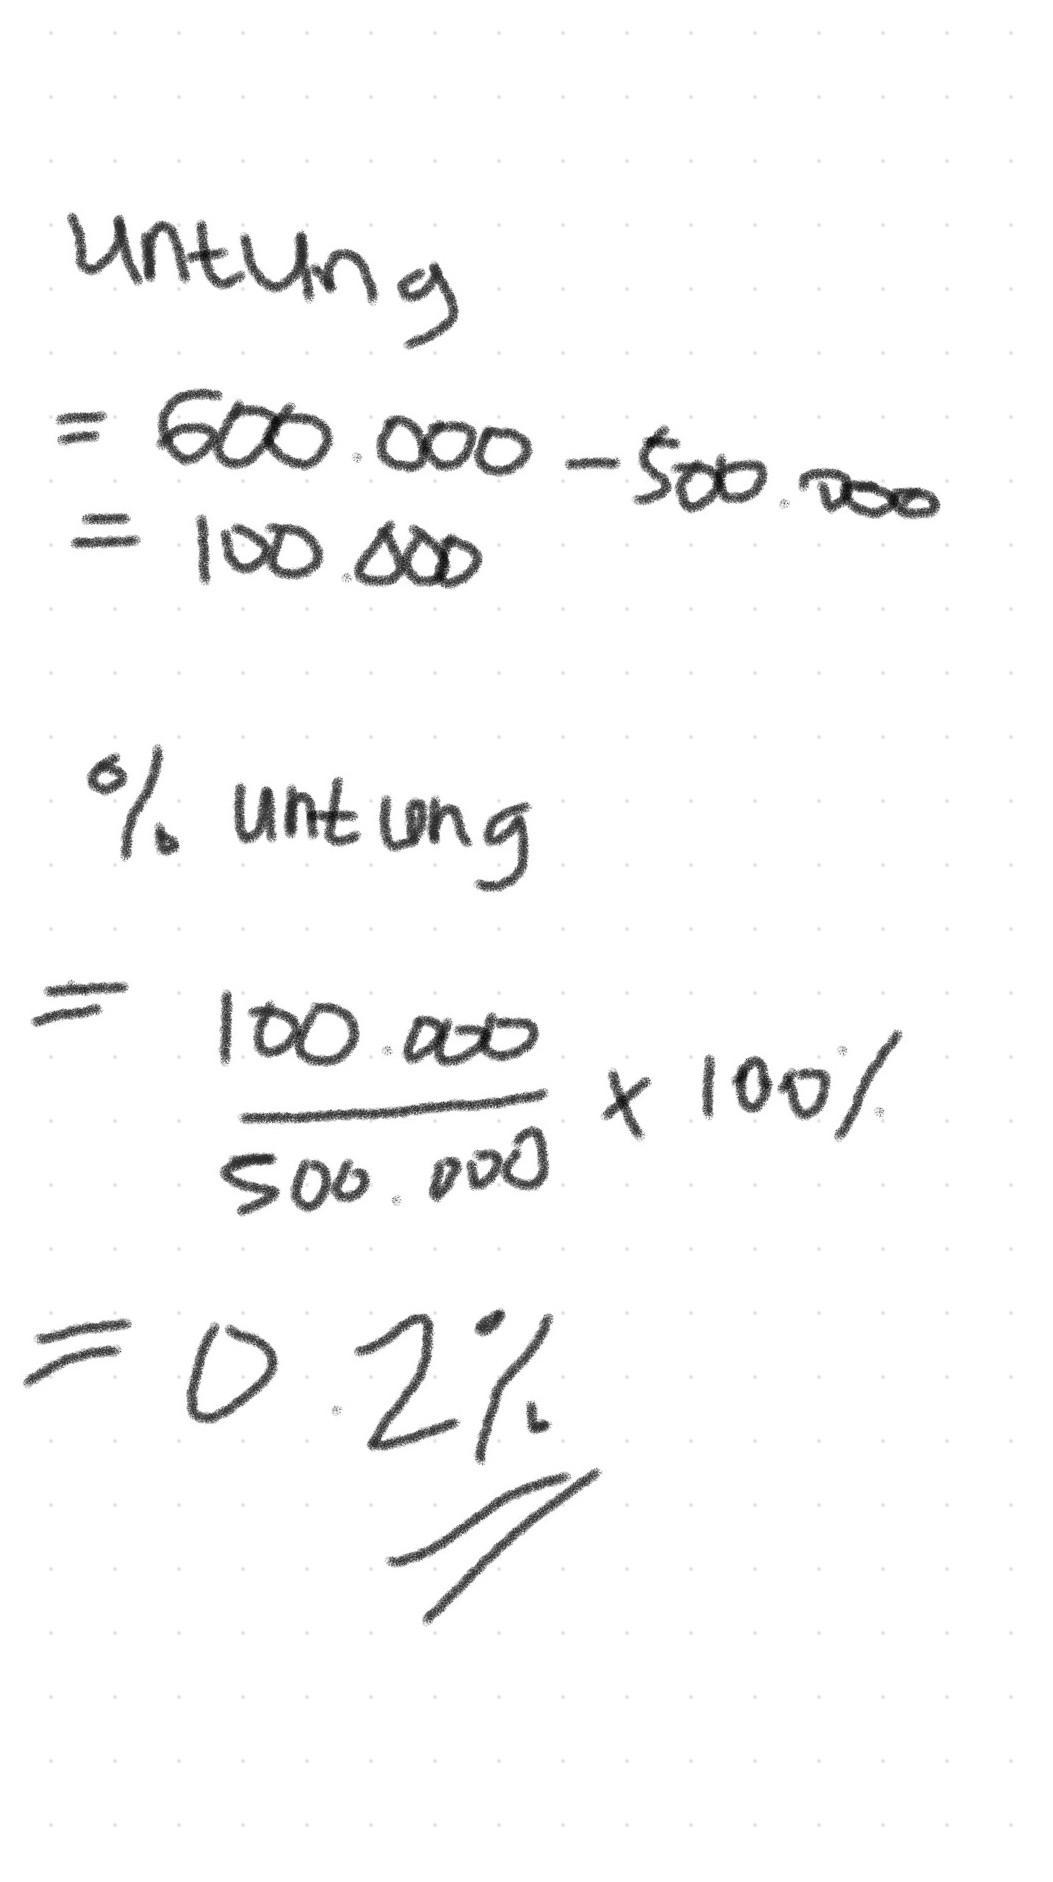 untung
= 600.000 - 500.000
= 100.000
% untung
= 100.000 / 500.000 x 100%
= 0.2%